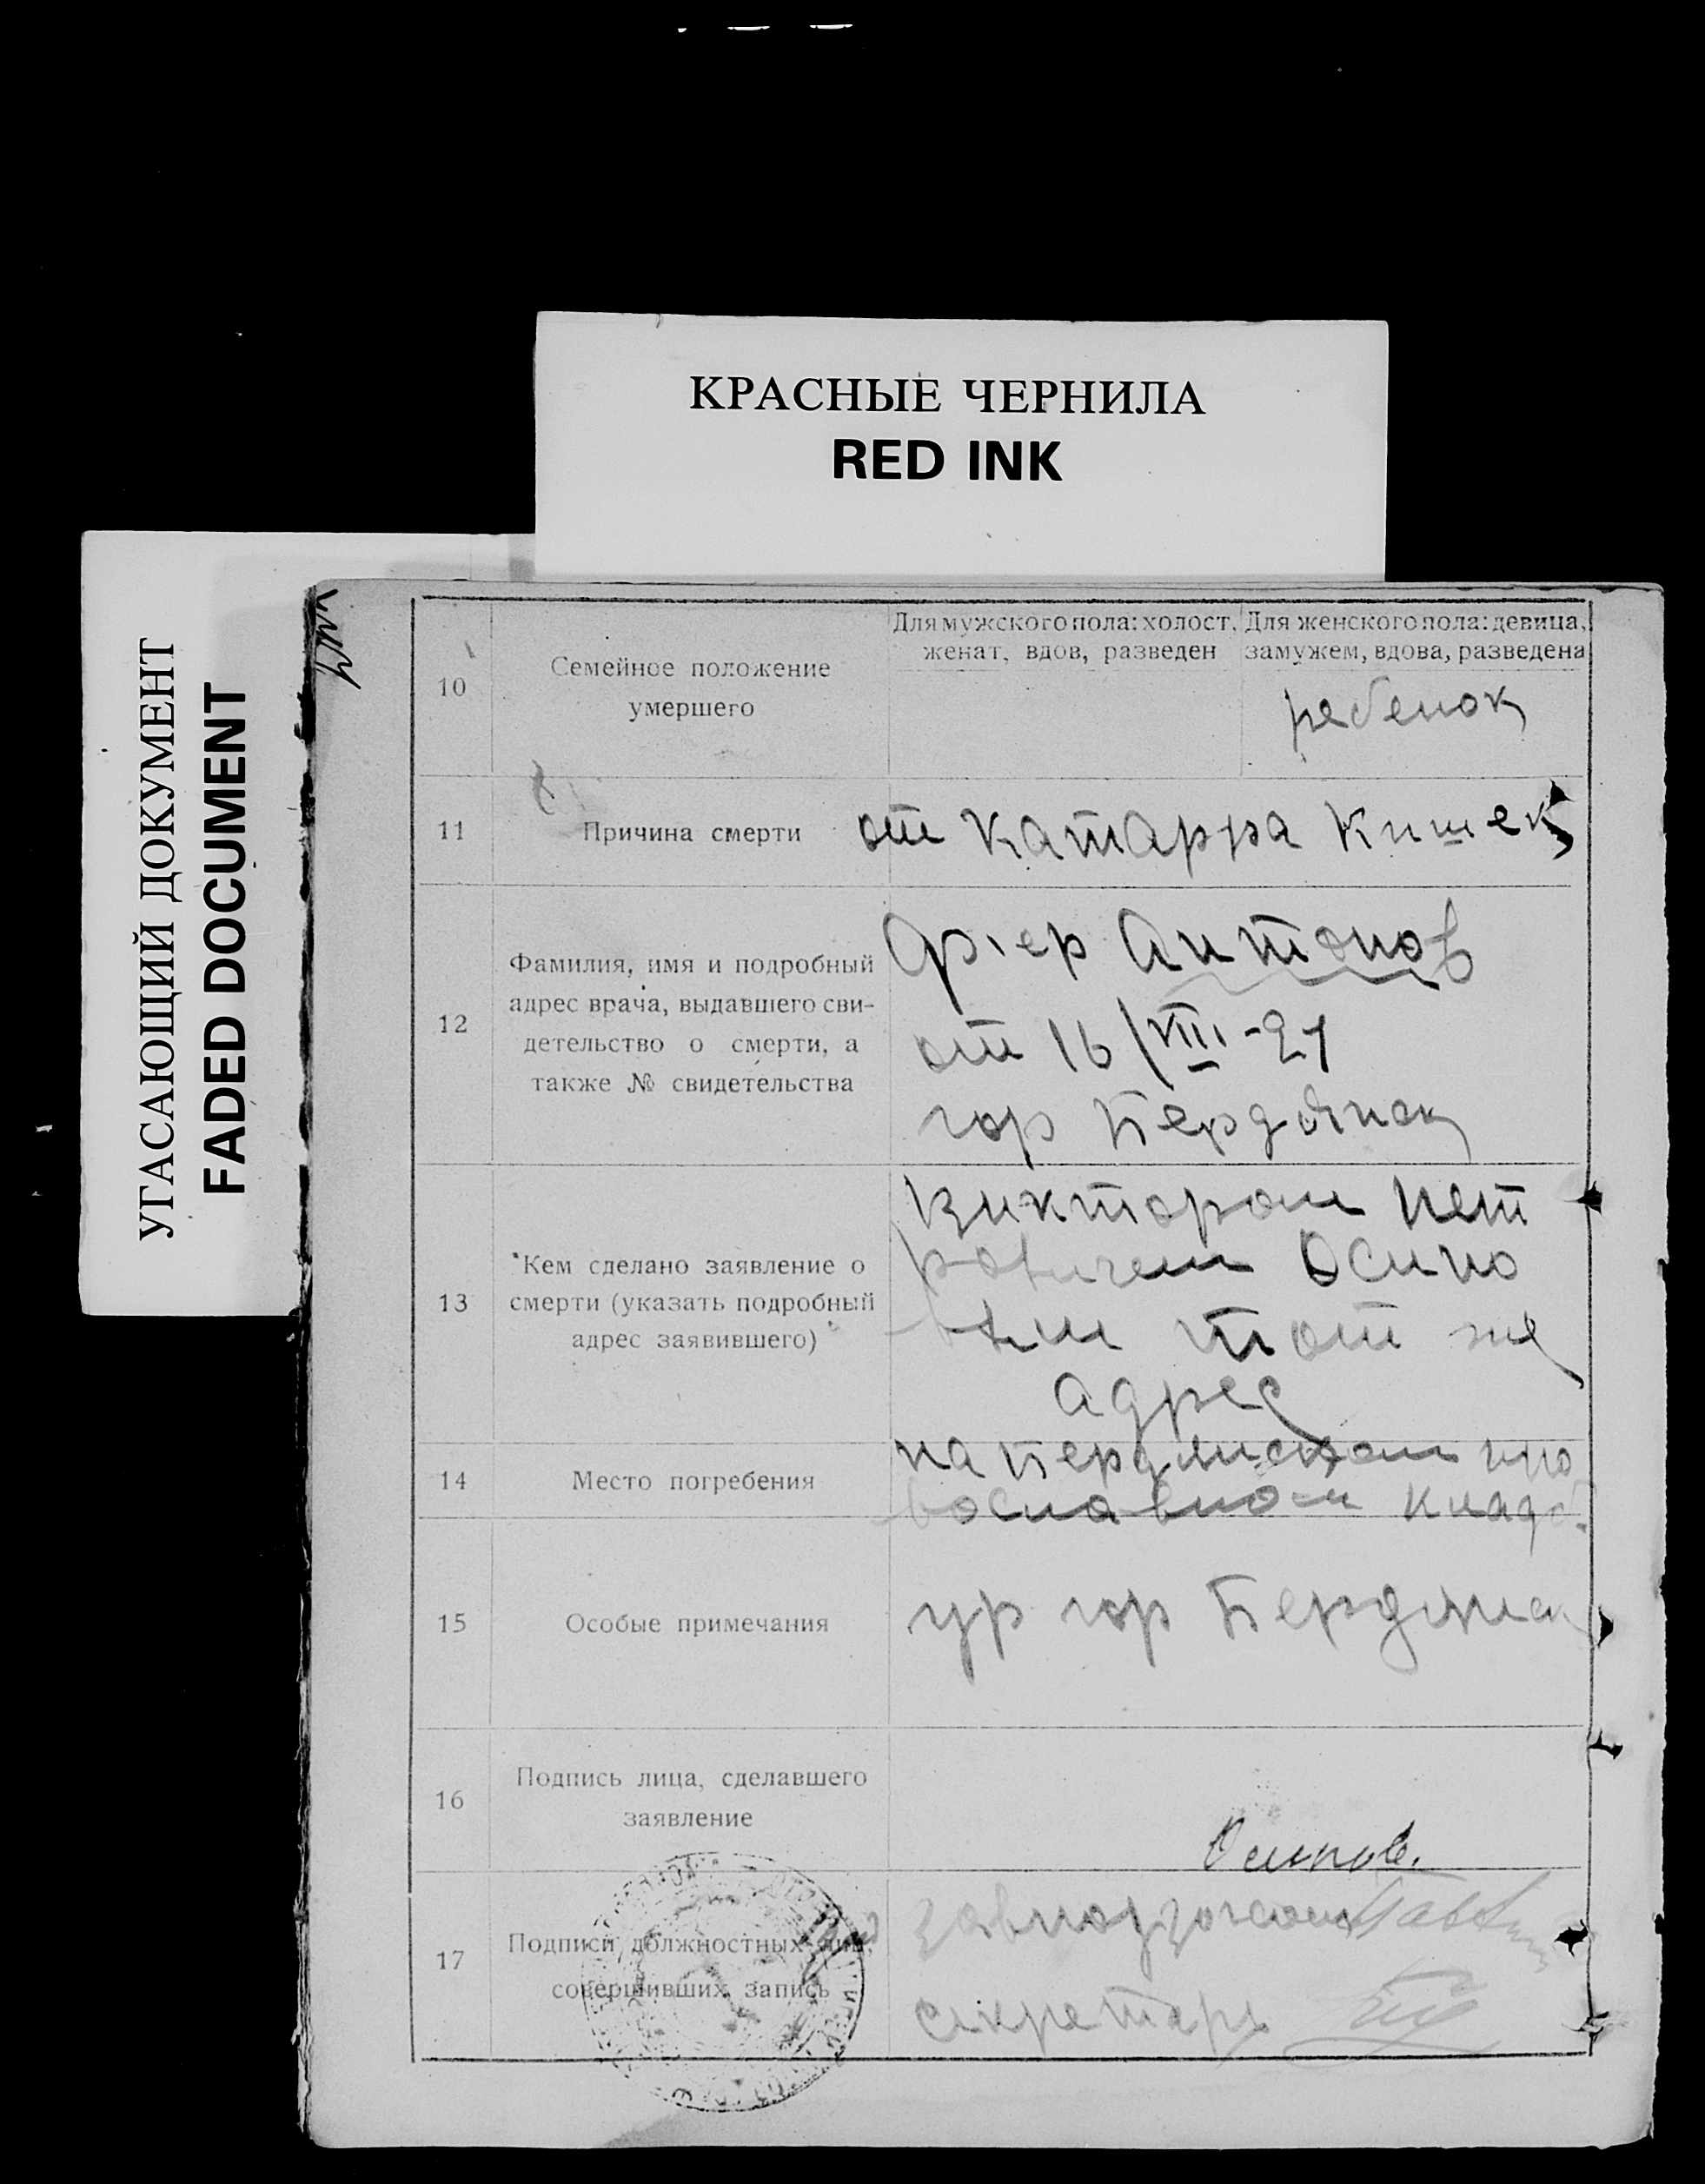 КРАСНЫЕ ЧЕРНИЛА
RED INK
УГАСАЮЩИЙ ДОКУМЕНТ
FADED DOCUMENT
10
Семейное положение
умершего
Для мужского пола: холост,
женат, вдов, разведен
Для женского пола: девица,
замужем, вдова, разведена
ребенок
11
Причина смерти
от катарра кишек
12
Фамилия, имя и подробный
адрес врача, выдавшего сви-
детельство о смерти, а
также № свидетельства
Антонов
от 16/VIII-21
гор Бердянск
13
Кем сделано заявление о
смерти (указать подробный
адрес заявившего)
Виктором Пет
ровичем Осипо
вым тот же
адрес
14
Место погребения
на Бердянском пра
вославном кладб.
15
Особые примечания
ур гор Бердянск
16
Подпись лица, сделавшего
заявление
Осипов.
17
Подписи должностных лиц,
совершивших запись
секретарь